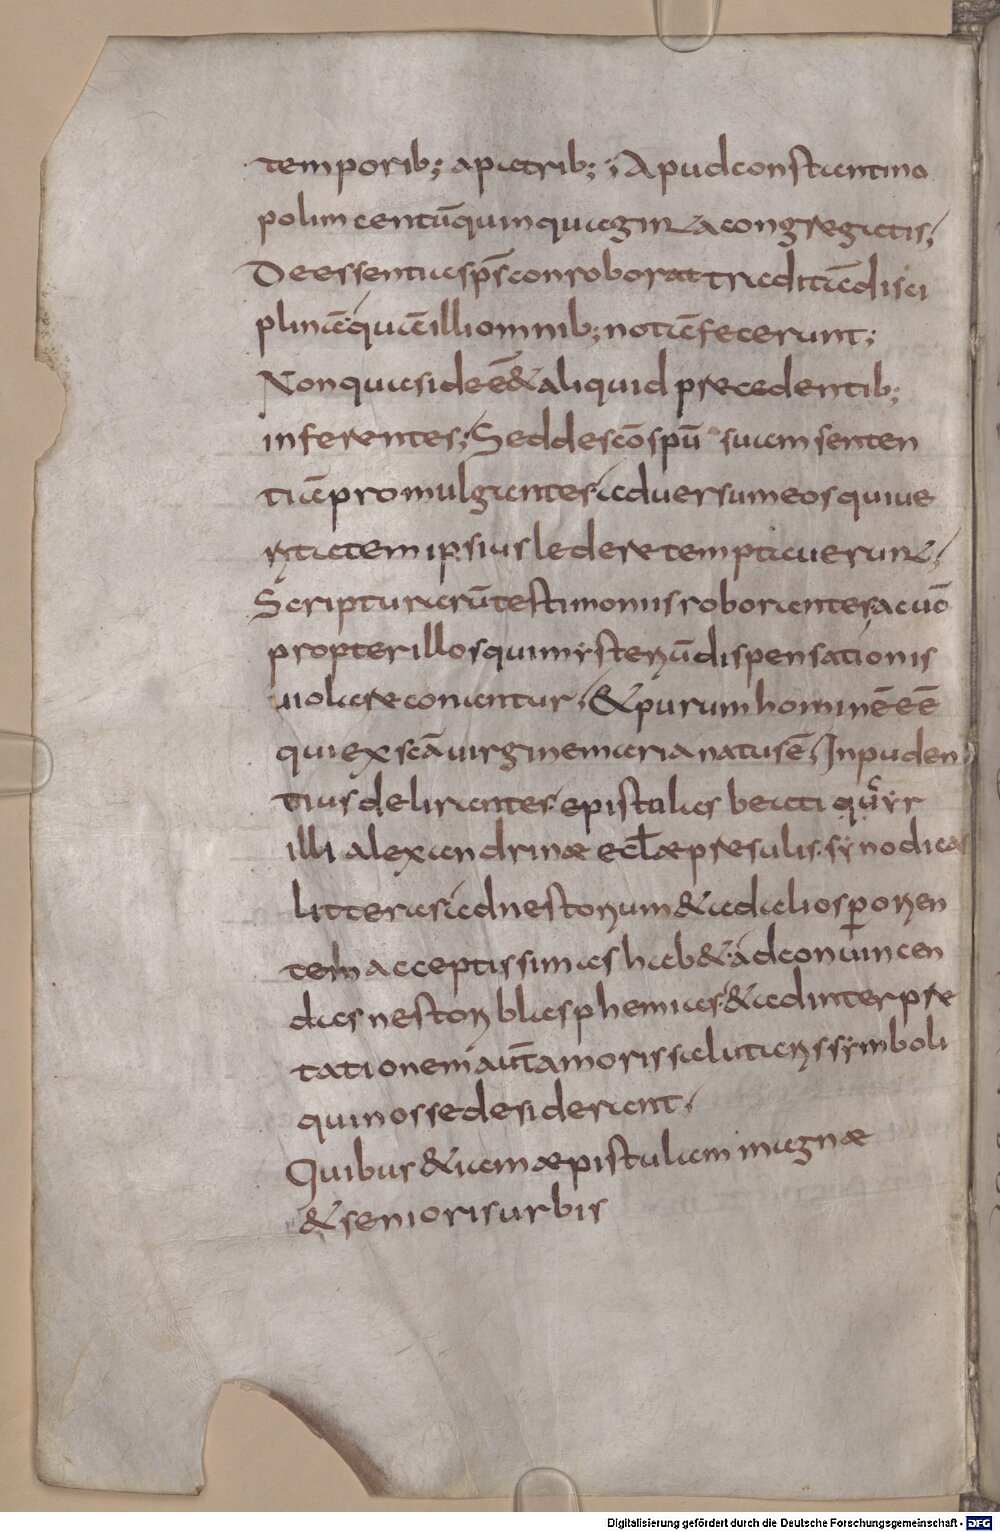 temporib; apatrib; ; Apudconstantino
polim centūquinquaginta congregatis;
Deessentiasp̄s conroborat traditā disci
plinā quā illi omnib; notā fecerunt;
Non quasi deēē & aliquid precedentib;
inferentes; Sed descō spū suam senten
tiā promulgantes adversum eos quiue
ritatem ipsius ledere temptauerunt;
Scripturarū testimoniis roborantes, acuō
propter illos qui mysteriū dispensationis
uiolare conantur, & purum hominē ēē
qui ex scā uirgine maria natus ē, Inpuden
tius delirantes. epistulas beati q̄ cyr
illi alexandrinæ ecl̄æ presulis. synodicas
litteras ad nestorium & ad alios per orien
tem acceptissimas hab& ad conuincen
das nestorii blasphemias. & ad interpre
tationem aut̄ amoris salutaris symboli
qui nosse desiderant.
Quibus & iam æpistulam magnæ
& senioris urbis
Digitalisierung gefördert durch die Deutsche Forschungsgemeinschaft - DFG